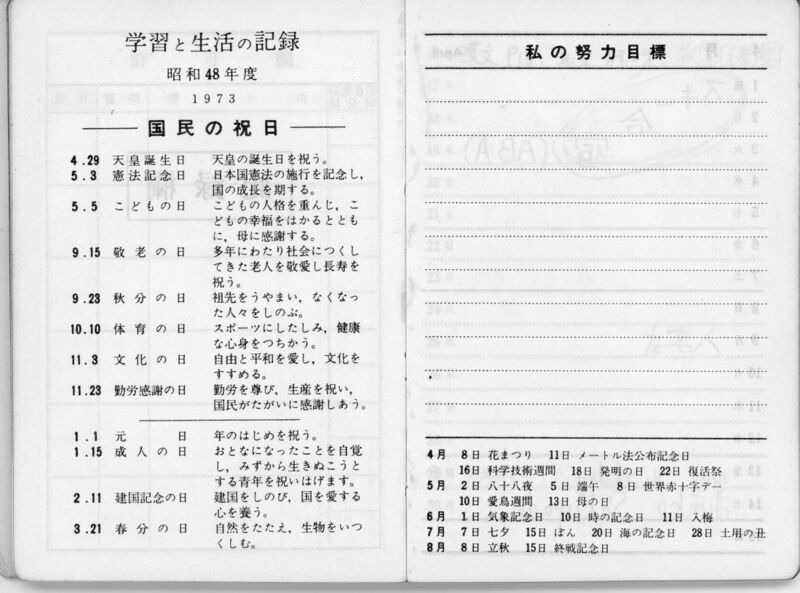 学習と生活の記録
昭和48年度
1973
国民の祝日
4.29 天皇誕生日 天皇の誕生日を祝う。
5.3 憲法記念日 日本国憲法の施行を記念し,
国の成長を期する。
5.5 こどもの日 こどもの人格を重んじ, こ
どもの幸福をはかるととも
に, 母に感謝する。
9.15 敬老の日 多年にわたり社会につくし
てきた老人を敬愛し長寿を
祝う。
9.23 秋分の日 祖先をうやまい, なくなっ
た人々をしのぶ。
10.10 体育の日 スポーツにしたしみ, 健康
な心身をつちかう。
11.3 文化の日 自由と平和を愛し, 文化を
すすめる。
11.23 勤労感謝の日 勤労を尊び, 生産を祝い,
国民がたがいに感謝しあう。
1.1 元日 年のはじめを祝う。
1.15 成人の日 おとなになったことを自覚
し, みずから生きぬこうと
する青年を祝いはげます。
2.11 建国記念の日 建国をしのび, 国を愛する
心を養う。
3.21 春分の日 自然をたたえ, 生物をいつ
くしむ。
私の努力目標
4月 8日 花まつり 11日 メートル法公布記念日
16日 科学技術週間 18日 発明の日 22日 復活祭
5月 2日 八十八夜 5日 端午 8日 世界赤十字デー
10日 愛鳥週間 13日 母の日
6月 1日 気象記念日 10日 時の記念日 11日 入梅
7月 7日 七夕 15日 ぼん 20日 海の記念日 28日 土用の丑
8月 8日 立秋 15日 終戦記念日